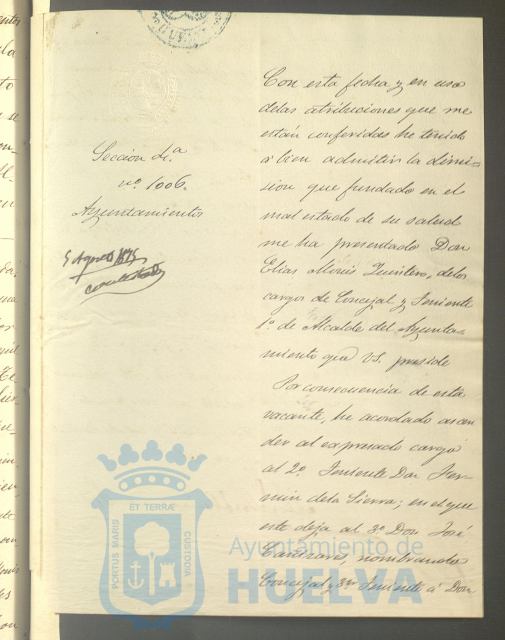 Sección 4.ª
nº. 1006.
Ayuntamientos
5 Agosto 1875
contestado
Con esta fecha y en uso
delas atribuciones que me
están conferidas he tenido
a bien admitir la dimi-
sion que fundado en el
mal estado de su salud
me ha presentado Don
Elias Quintero, delos
cargos de Concejal y Teniente
1º de Alcalde del Ayunta-
miento que VS. preside
Por consecuencia de esta
vacante, he acordado ascen-
der al expresado cargo
al 2º Teniente Don Fer-
min dela Sierra; en el que
este deja al 3º Don José
nombrando
Concejal y 3er Teniente á Don
ET TERRÆ
PORTUS MARIS
CUSTODIA
Ayuntamiento de
HUELVA